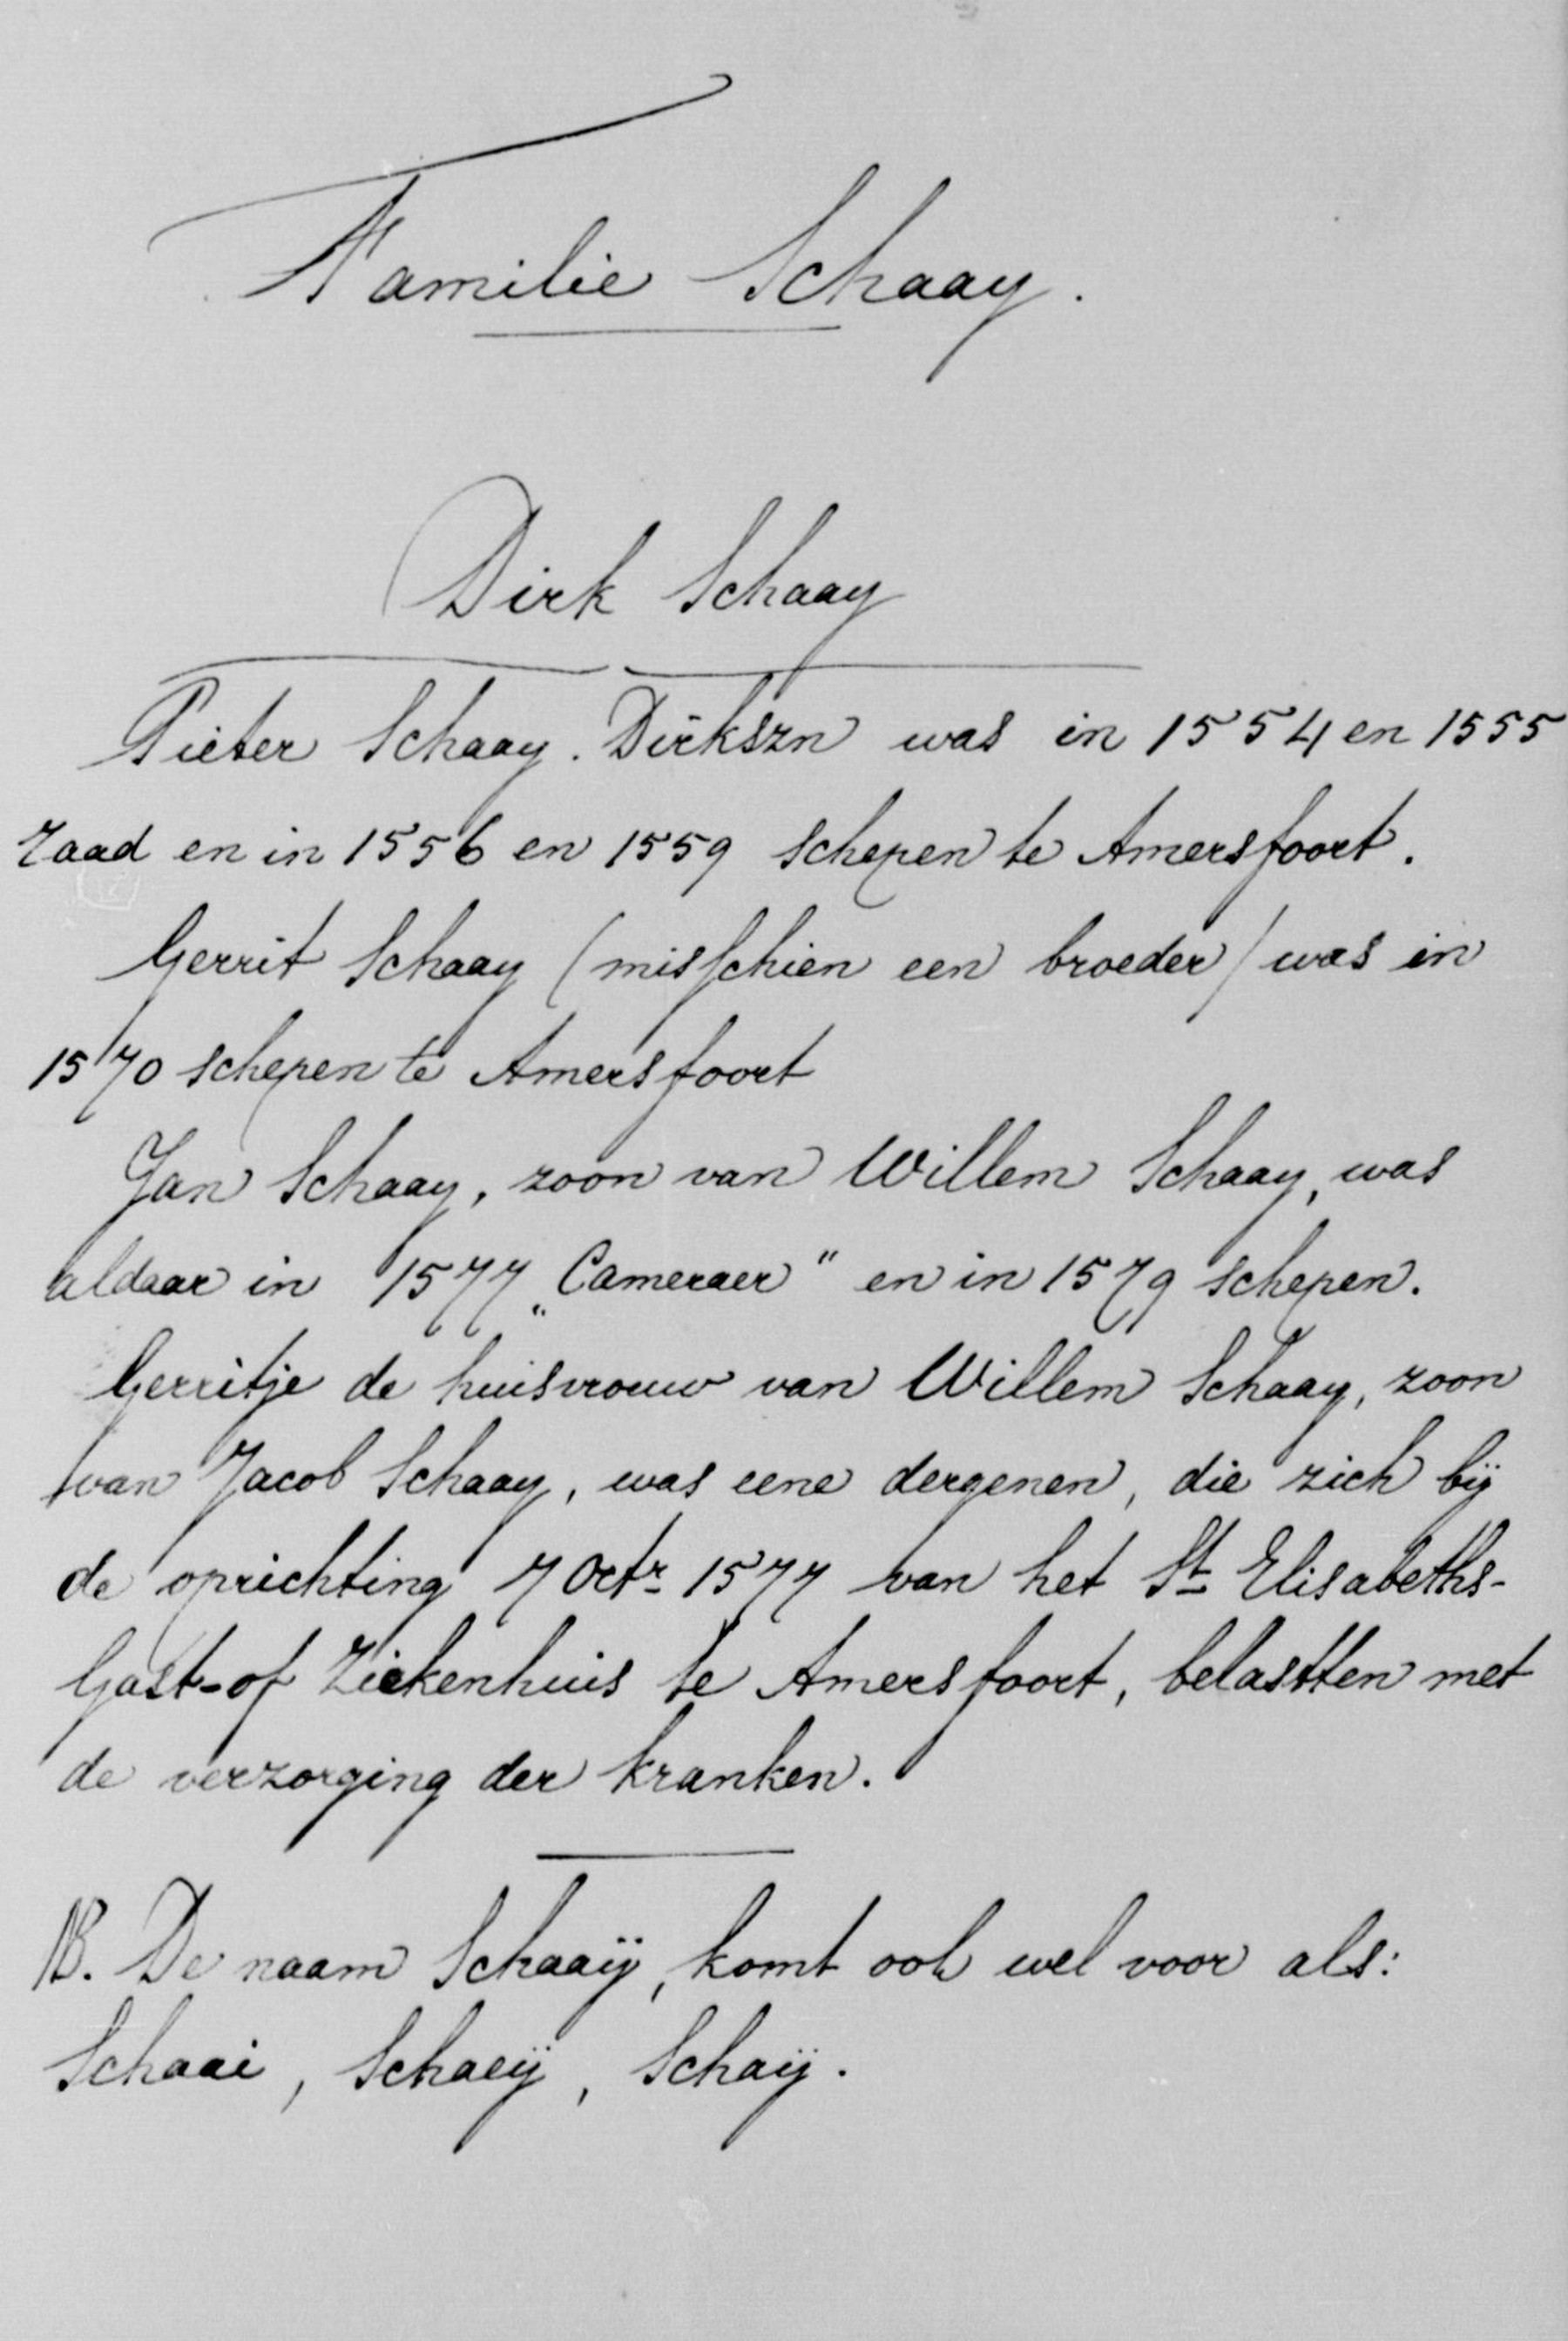 Familie Schaay.
Dirk Schaay
Pieter Schaay. Dirkszn was in 1554 en 1555
raad en in 1556 en 1559 schepen te Amersfoort.
Gerrit Schaay (misschien een broeder) was in
1570 schepen te Amersfoort
Jan Schaay, zoon van Willem Schaay, was
aldaar in 1577 „Cameraer" en in 1579 schepen.
Gerritje de huisvrouw van Willem Schaay, zoon
van Jacob Schaay, was eene dergenen, die zich bij
de oprichting 7 Octr 1577 van het St Elisabeths-
Gast-of Ziekenhuis te Amersfoort, belastten met
de verzorging der kranken.
NB. De naam Schaaÿ, komt ook wel voor als:
Schaai, Schaeÿ, Schaÿ.